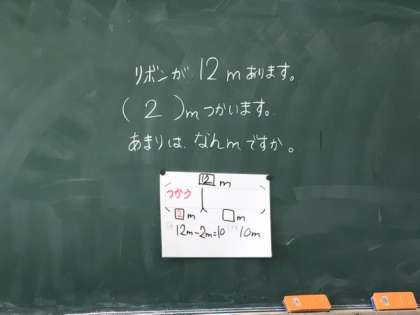 リボンが 12 m あります。
( 2 ) m つかいます。
あまりは、なんmですか。
12 m
つかう
2 m □ m
12m-2m=10 10m